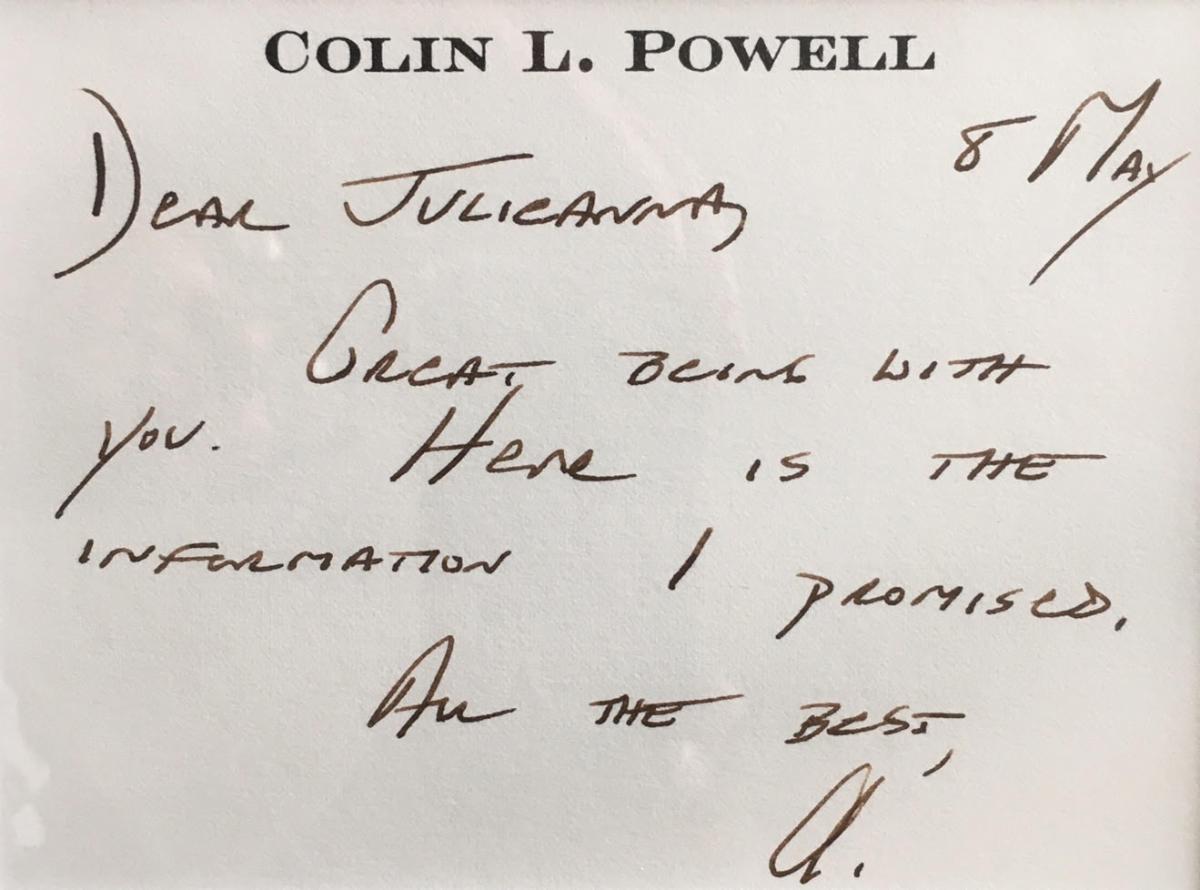 COLIN L. POWELL
8 May
Dear Julieanna,
Great being with
you. Here is the
information I promised.
All the best,